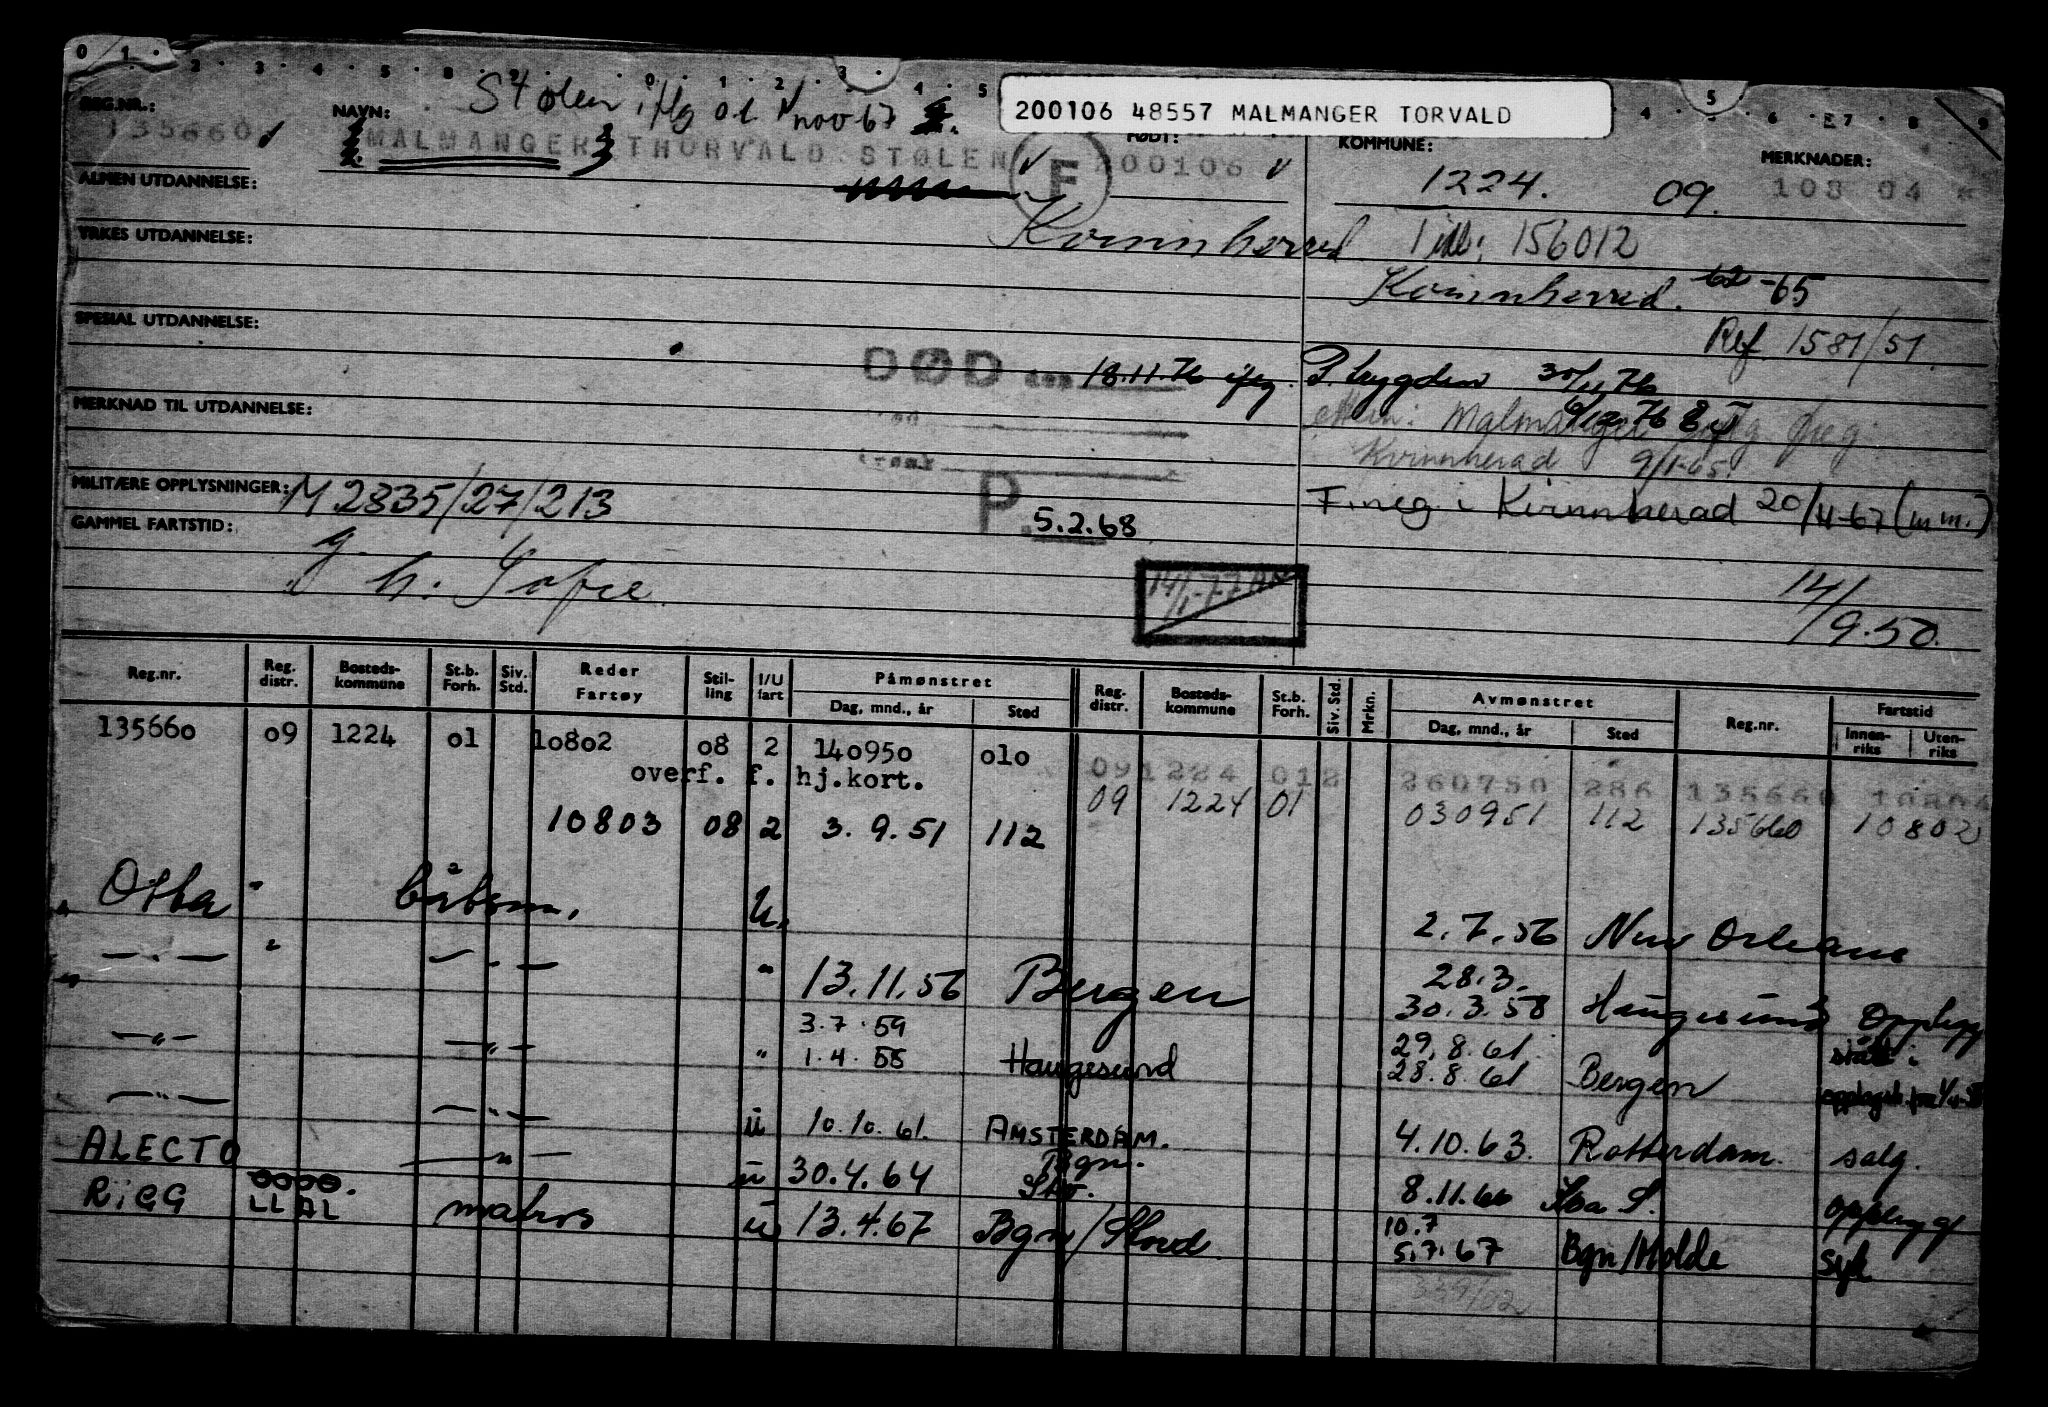 0 1 2 3 4 5 6 0 1 2 3 4 5
5 4 6 E7 8 9
Stølen ifg nov 67
200106 48557 MALMANGER TORVALD
REG.NR.: NAVN: FØDT: KOMMUNE: MERKNADER:
135660 MALMANGER THORVALD STØLEN F 200106 1224. 09. 108 04
ALMEN UTDANNELSE:
Kvinnherred Till: 156012
YRKES UTDANNELSE:
Kvinnherred. 62-65
Ref 1581/51.
SPESIAL UTDANNELSE:
DØD 18.11.76 ifg. P. trygden 30/11 76
MERKNAD TIL UTDANNELSE:
Malmanger
Kvinnherad 9/1-65.
MILITÆRE OPPLYSNINGER: M 2835/27/213 P. F.neg. i Kvinnherad 20/4-67 (m m.)
GAMMEL FARTSTID: 5.2.68
g. h. Sofie
14/1-77
14/9.50.
Reg.nr. Reg. distr. Bosteds-kommune St.b. Forh. Siv. Std. Reder Fartøy Stil-ling I/U fart Påmønstret Dag, mnd., år Sted Reg. distr. Bosteds-kommune St.b. Forh. Siv. Std. Mrkn. Avmønstret Dag, mnd., år Sted Reg.nr. Fartstid Innen-riks Uten-riks
135660 09 1224 01 10802 08 2 140950 010
overf. f. hj.kort. 091224 012 260750 286 135660 10804
09 1224 01 030951 112 135660 10802
10803 08 2 3.9.51 112
Otta " båtsm. U. 2.7.56 New Orleans
—"— " —"— " 13.11.56 Bergen 28.3. 30.3.58 Haugesund Opplegg
—"— —"— " 3.7.59 1.4.58 Haugesund 29.8.61 28.8.61 Bergen
—"— —"— u 10.10.61. AMSTERDAM. 4.10.63. Rotterdam. salg.
ALECTO —"— u 30.4.64 Bgn. 8.11.66 opplegg
RIGG LLAL matros u 13.4.67 Bgn/Stord 10.7 5.7.67 Bgn/Molde syk
339/02